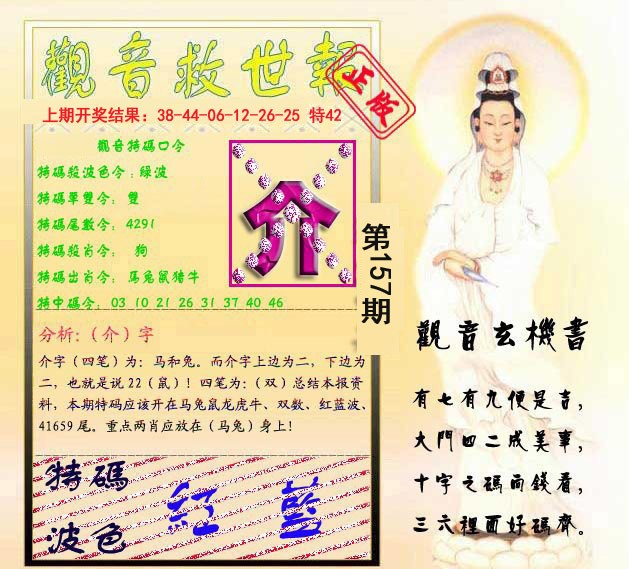 觀音救世報
正版
上期开奖结果：38-44-06-12-26-25 特42
觀音特碼口令
特碼殺波色令：綠波
特碼單雙令： 雙
特碼尾數令： 4291
特碼殺肖令： 狗
特碼出肖令： 马兔鼠猪牛
特中碼令： 03 10 21 26 31 37 40 46
介
第157期
分析:（介）字
介字（四笔）为：马和兔。而介字上边为二，下边为
二，也就是说22（鼠）！四笔为：（双）总结本报资
料，本期特码应该开在马兔鼠龙虎牛、双数、红蓝波、
41659尾。重点两肖应放在（马兔）身上!
特碼
波色
紅 藍
觀音玄機書
有七有九便是吉，
大門四二成美事，
十字之碼向錢看，
三六裡面好碼齊。